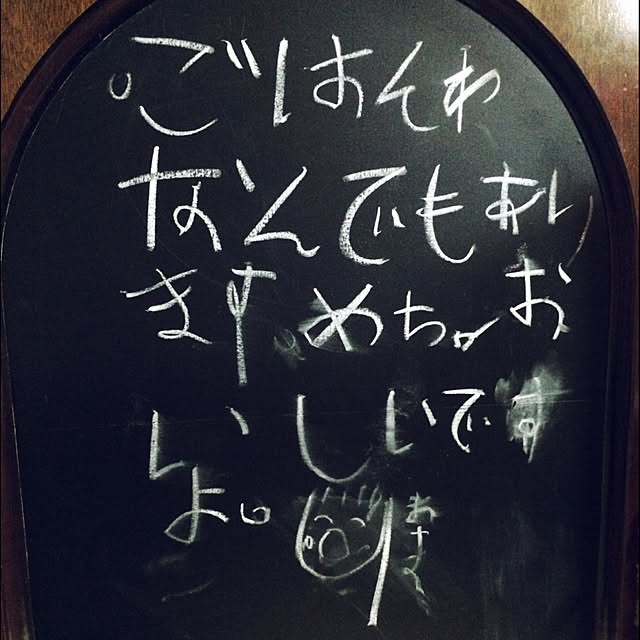 。ごはんわ
なんでもあり
ますめちゃお
いしいです
よ。